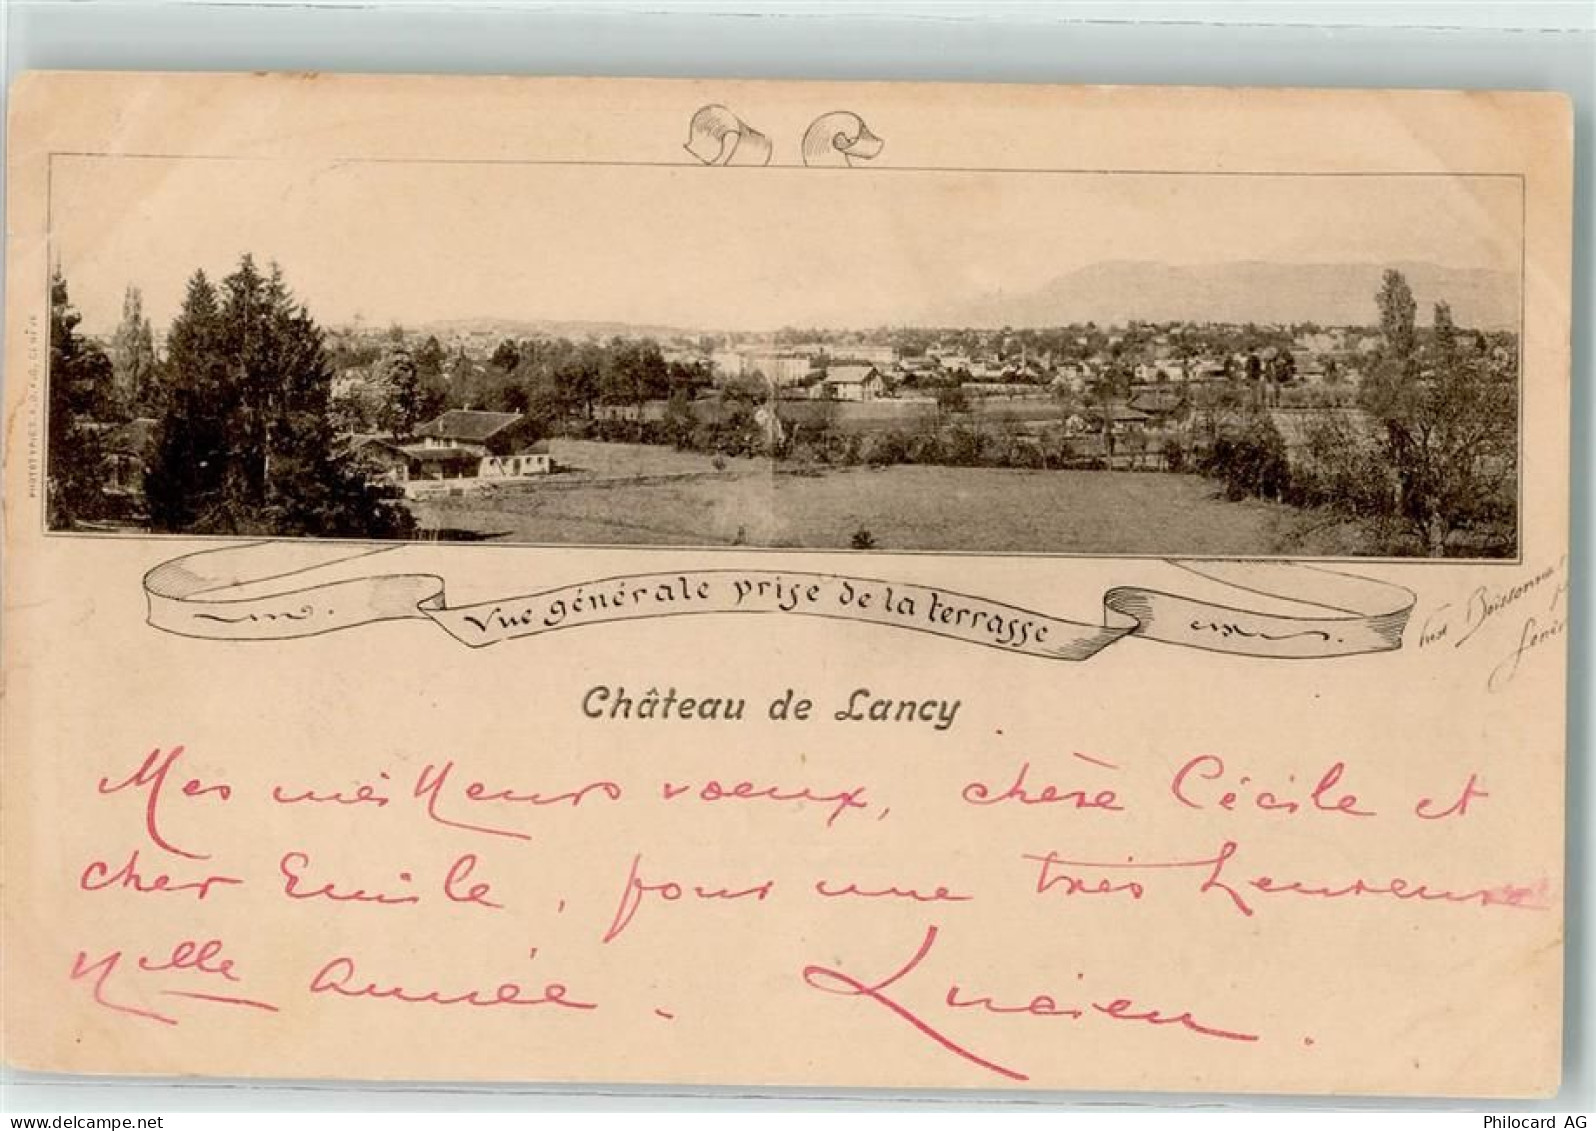 PHOTOTYPIE S.A.D.A.G. GENÈVE
Vue générale prise de la terrasse
Fred Boissonnas
Genèv
Château de Lancy
Mes meilleurs voeux, chère Cécile et
cher Emile, pour une très heureuse
Nlle année.
Lucien.
www.delcampe.net
Philocard AG